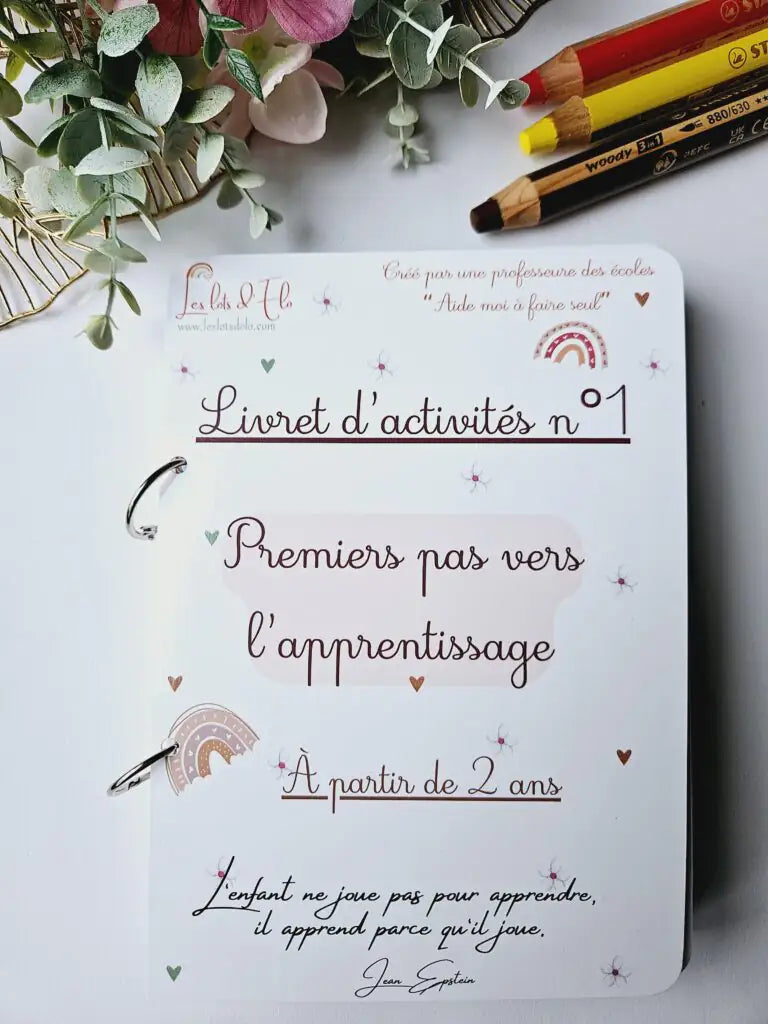 Les lots d'Elo
www.leslotsdelo.com
Créé par une professeure des écoles
"Aide moi à faire seul"
Livret d'activités n°1
Premiers pas vers
l'apprentissage
À partir de 2 ans
L'enfant ne joue pas pour apprendre,
il apprend parce qu'il joue.
Jean Epstein
woody 3 in 1
880/630
PEFC
UK
CA
CE
STA
STA